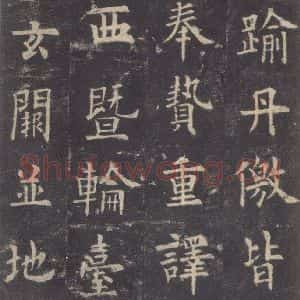 踰丹徼皆
奉贄重譯
西暨輪臺
玄闕並地